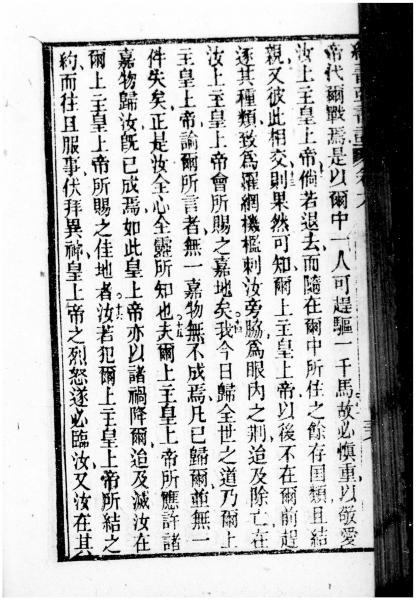 帝代爾戰焉是以爾中一人可趕驅一千焉故必慎重以敬愛
汝上主皇上帝倘若退去而隨在爾中所住之餘存国類且結
親又彼此相交則果然可知爾上主皇上帝以後不在爾前趕
逐其種類致為羅網機檻刺汝旁脇為眼內之荊迨及除亡在
汝上主皇上帝會所賜之嘉地矣十四我今日歸全世之道乃爾上
主皇上帝諭爾所言者無一嘉物無不成焉凡已歸爾並無一
件失矣正是汝全心全靈所知也十五夫爾上主皇上帝所應許諸
嘉物歸汝既已成焉如此皇上帝亦以諸禍降爾迨及滅汝在
爾上主皇上帝所賜之佳地者十六汝若犯爾上主皇上帝所結之
約而往且服事伏拜異神皇上帝之烈怒遂必臨汝又汝在其